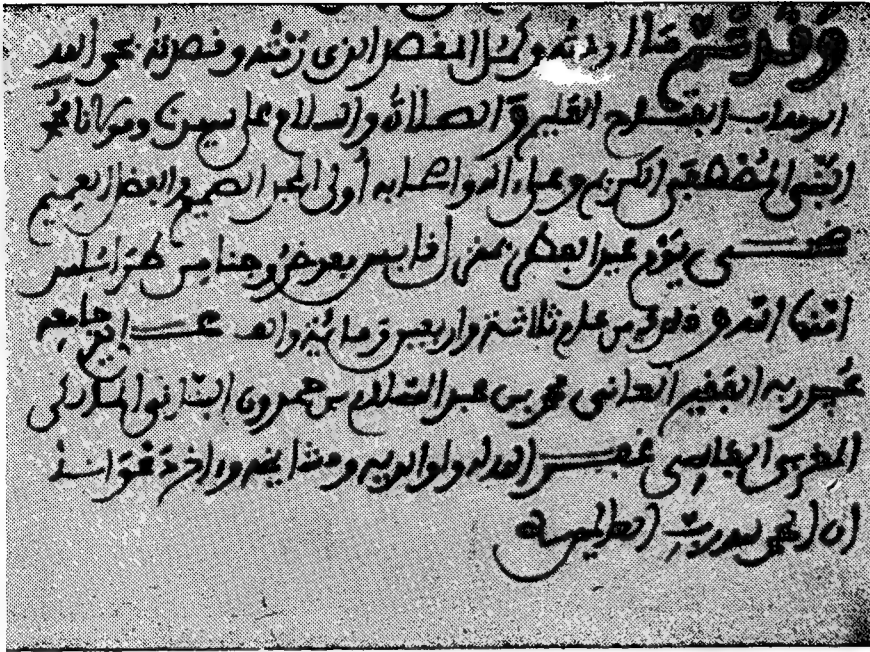 وقد تم ما اردته وكمل الغصن الذي رمته وقصدته بحمد الله
الوهاب الفتاح العليم والصلاة والسلام على سيدنا ومولانا محمد
النبي المصطفى الكريم وعلى اله واصحابه أولى المجد الصميم والفضل العميم
ضحى يوم عيد الفطر بمغر افابس بعد خروجنا من طرابلس
امنها الله وذلك من عام ثلاثة واربعين ومائة والف على يد جامعه
عبد ربه الفقير الجاني محمد بن عبد السلام بن حمدون البناني الملالى
المغربي الفاسي غفر الله له ولوالديه ومشايخه وءاخر دعوانا
ان الحمد لله رب العالمين